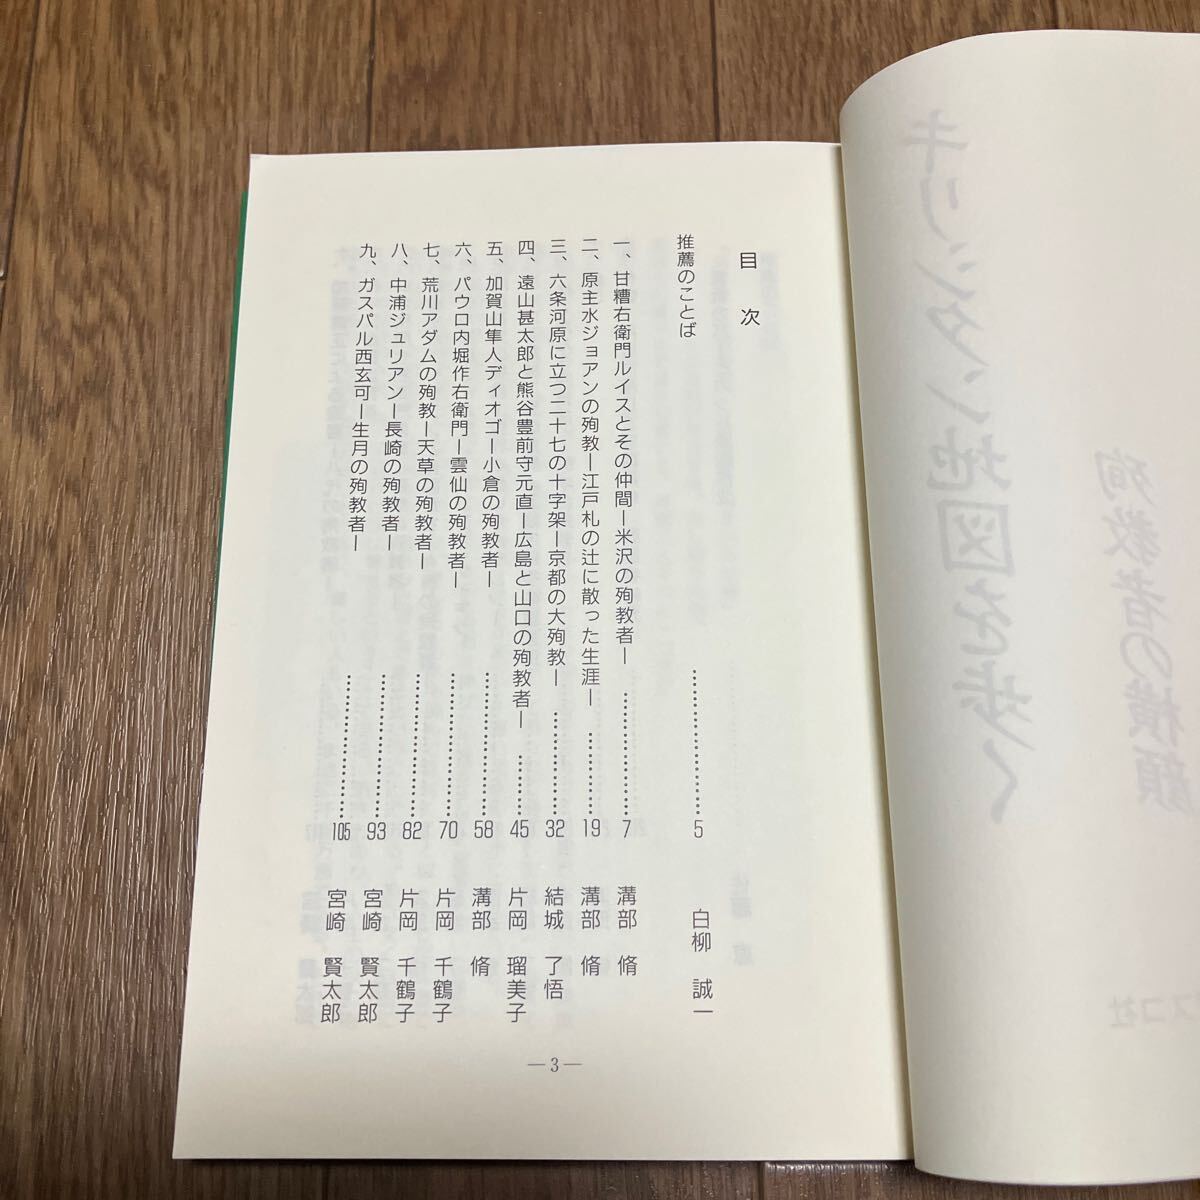 目次
推薦のことば……………………5 白柳 誠一
一、甘糟右衛門ルイスとその仲間ー米沢の殉教者ー……………………7 溝部 脩
二、原主水ジョアンの殉教ー江戸札の辻に散った生涯ー……………………19 溝部 脩
三、六条河原に立つ二十七の十字架ー京都の大殉教ー……………………32 結城 了悟
四、遠山甚太郎と熊谷豊前守元直ー広島と山口の殉教者ー……………………45 片岡 瑠美子
五、加賀山隼人ディオゴー小倉の殉教者ー……………………58 溝部 脩
六、パウロ内堀作右衛門ー雲仙の殉教者ー……………………70 片岡 千鶴子
七、荒川アダムの殉教ー天草の殉教者ー……………………82 片岡 千鶴子
八、中浦ジュリアンー長崎の殉教者ー……………………93 宮崎 賢太郎
九、ガスパル西玄可ー生月の殉教者ー……………………105 宮崎 賢太郎
—3—
キリシタン地図を歩く
殉教者の横顔
スコ社